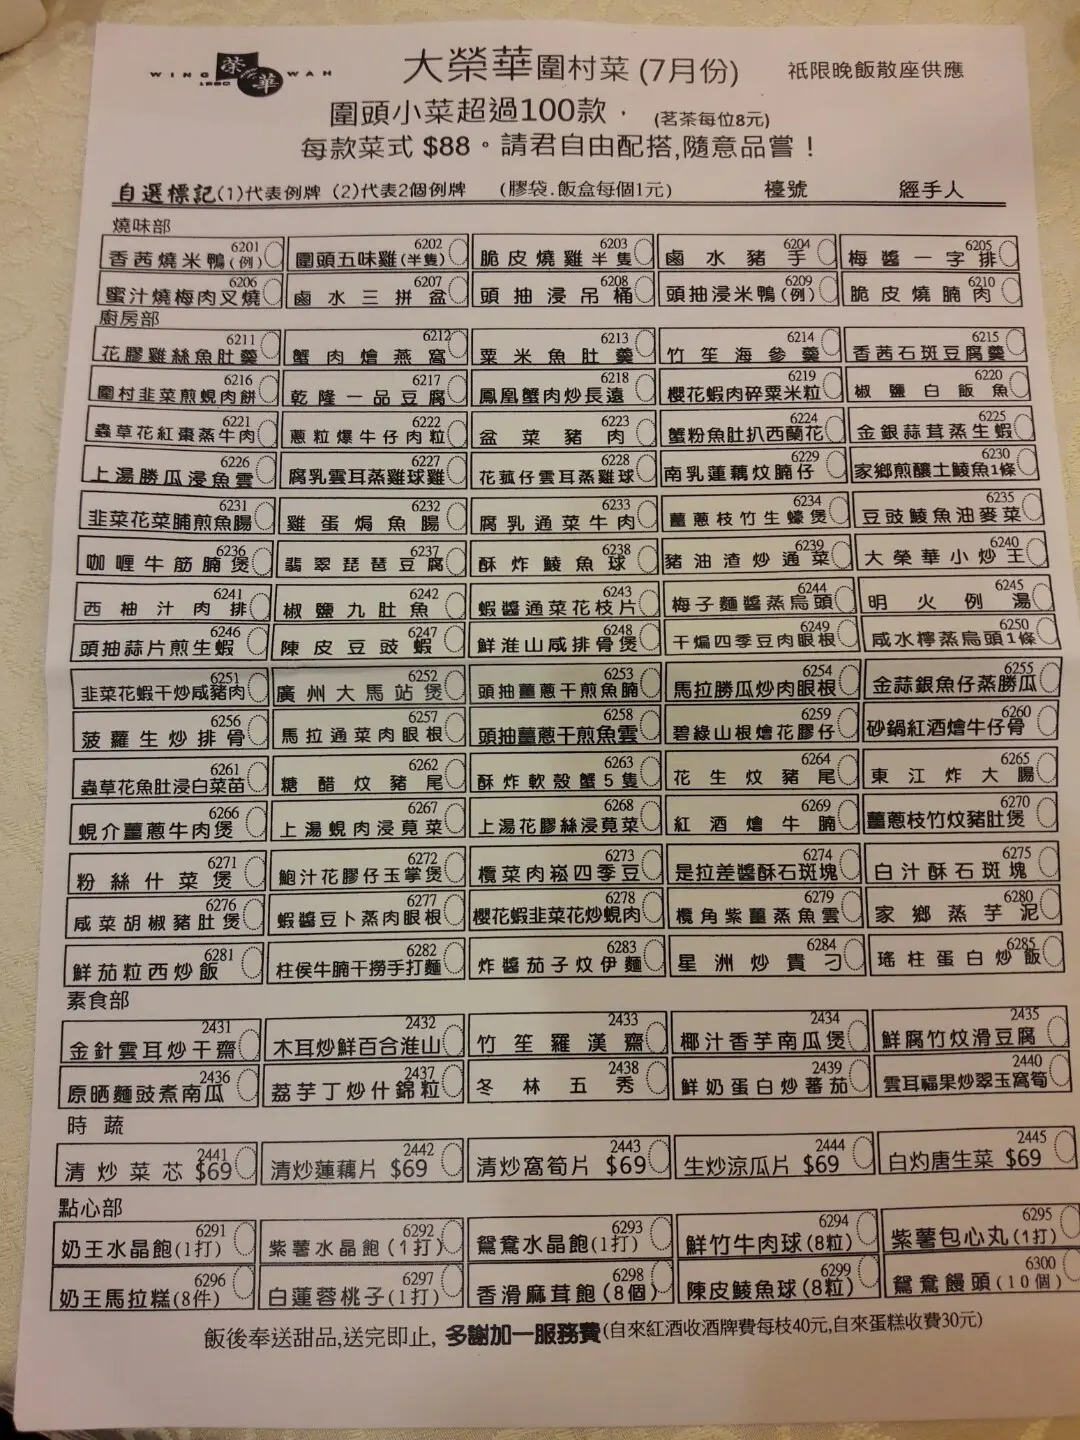 WING 榮華 WAH
1950
大榮華圍村菜 (7月份) 祇限晚飯散座供應
圍頭小菜超過100款, (茗茶每位8元)
每款菜式 $88。請君自由配搭,隨意品嘗！
自選標記(1)代表例牌 (2)代表2個例牌 (膠袋.飯盒每個1元) 檯號 經手人
燒味部
6201 香茜燒米鴨(例) 6202 圍頭五味雞(半隻) 6203 脆皮燒雞半隻 6204 鹵水豬手 6205 梅醬一字排
6206 蜜汁燒梅肉叉燒 6207 鹵水三拼盆 6208 頭抽浸吊桶 6209 頭抽浸米鴨(例) 6210 脆皮燒腩肉
廚房部
6211 花膠雞絲魚肚羹 6212 蟹肉燴燕窩 6213 粟米魚肚羹 6214 竹笙海參羹 6215 香茜石斑豆腐羹
6216 圍村韭菜煎蜆肉餅 6217 乾隆一品豆腐 6218 鳳凰蟹肉炒長遠 6219 櫻花蝦肉碎粟米粒 6220 椒鹽白飯魚
6221 蟲草花紅棗蒸牛肉 6222 蔥粒爆牛仔肉粒 6223 盆菜豬肉 6224 蟹粉魚肚扒西蘭花 6225 金銀蒜茸蒸生蝦
6226 上湯勝瓜浸魚雲 6227 腐乳雲耳蒸雞球雞 6228 花菰仔雲耳蒸雞球 6229 南乳蓮藕炆腩仔 6230 家鄉煎釀土鯪魚1條
6231 韭菜花菜脯煎魚腸 6232 雞蛋焗魚腸 6233 腐乳通菜牛肉 6234 薑蔥枝竹生蠔煲 6235 豆豉鯪魚油麥菜
6236 咖喱牛筋腩煲 6237 翡翠琵琶豆腐 6238 酥炸鯪魚球 6239 豬油渣炒通菜 6240 大榮華小炒王
6241 西柚汁肉排 6242 椒鹽九肚魚 6243 蝦醬通菜花枝片 6244 梅子麵醬蒸烏頭 6245 明火例湯
6246 頭抽蒜片煎生蝦 6247 陳皮豆豉蝦 6248 鮮淮山咸排骨煲 6249 干煸四季豆肉眼根 6250 咸水檸蒸烏頭1條
6251 韭菜花蝦干炒咸豬肉 6252 廣州大馬站煲 6253 頭抽薑蔥干煎魚腩 6254 馬拉勝瓜炒肉眼根 6255 金蒜銀魚仔蒸勝瓜
6256 菠蘿生炒排骨 6257 馬拉通菜肉眼根 6258 頭抽薑蔥干煎魚雲 6259 碧綠山根燴花膠仔 6260 砂鍋紅酒燴牛仔骨
6261 蟲草花魚肚浸白菜苗 6262 糖醋炆豬尾 6263 酥炸軟殼蟹5隻 6264 花生炆豬尾 6265 東江炸大腸
6266 蜆介薑蔥牛肉煲 6267 上湯蜆肉浸莧菜 6268 上湯花膠絲浸莧菜 6269 紅酒燴牛腩 6270 薑蔥枝竹炆豬肚煲
6271 粉絲什菜煲 6272 鮑汁花膠仔玉掌煲 6273 欖菜肉崧四季豆 6274 是拉差醬酥石斑塊 6275 白汁酥石斑塊
6276 咸菜胡椒豬肚煲 6277 蝦醬豆卜蒸肉眼根 6278 櫻花蝦韭菜花炒蜆肉 6279 欖角紫薑蒸魚雲 6280 家鄉蒸芋泥
6281 鮮茄粒西炒飯 6282 柱侯牛腩干撈手打麵 6283 炸醬茄子炆伊麵 6284 星洲炒貴刁 6285 瑤柱蛋白炒飯
素食部
2431 金針雲耳炒干齋 2432 木耳炒鮮百合淮山 2433 竹笙羅漢齋 2434 椰汁香芋南瓜煲 2435 鮮腐竹炆滑豆腐
2436 原晒麵豉煮南瓜 2437 荔芋丁炒什錦粒 2438 冬林五秀 2439 鮮奶蛋白炒蕃茄 2440 雲耳福果炒翠玉窩筍
時蔬
2441 清炒菜芯 $69 2442 清炒蓮藕片 $69 2443 清炒窩筍片 $69 2444 生炒涼瓜片 $69 2445 白灼唐生菜 $69
點心部
6291 奶王水晶飽(1打) 6292 紫薯水晶飽(1打) 6293 鴛鴦水晶飽(1打) 6294 鮮竹牛肉球(8粒) 6295 紫薯包心丸(1打)
6296 奶王馬拉糕(8件) 6297 白蓮蓉桃子(1打) 6298 香滑麻茸飽(8個) 6299 陳皮鯪魚球(8粒) 6300 鴛鴦饅頭(10個)
飯後奉送甜品,送完即止, 多謝加一服務費(自來紅酒收酒牌費每枝40元,自來蛋糕收費30元)